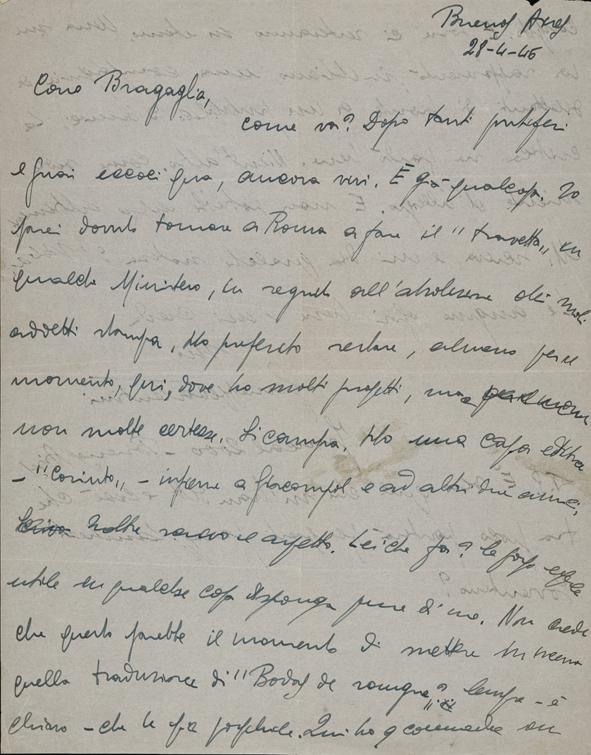 Buenos Ayres
28-4-46
Caro Bragaglia,
come va? Dopo tanti putiferi
e guai eccoci qua, ancora vivi. È già qualcosa. Io
sarei dovuto tornare a Roma a fare il "travetto" in
qualche Ministero, in seguito all'abolizione dei
addetti stampa, Ho preferito restare, almeno per il
momento, qui, dove ho molti progetti, ma
non molte certezze. Si campa. Ho una casa editrice
- "Corinto" - insieme a e ad altri due amici.
Molto lavoro e aspetto. Lei che fa? Le posso essere
utile in qualche cosa disponga pure di me. Non crede
che questo sarebbe il momento di mettere in scena
quella traduzione di "Bodas de sangre"? Sempre - è
chiaro - che le sia possibile. Qui ho un